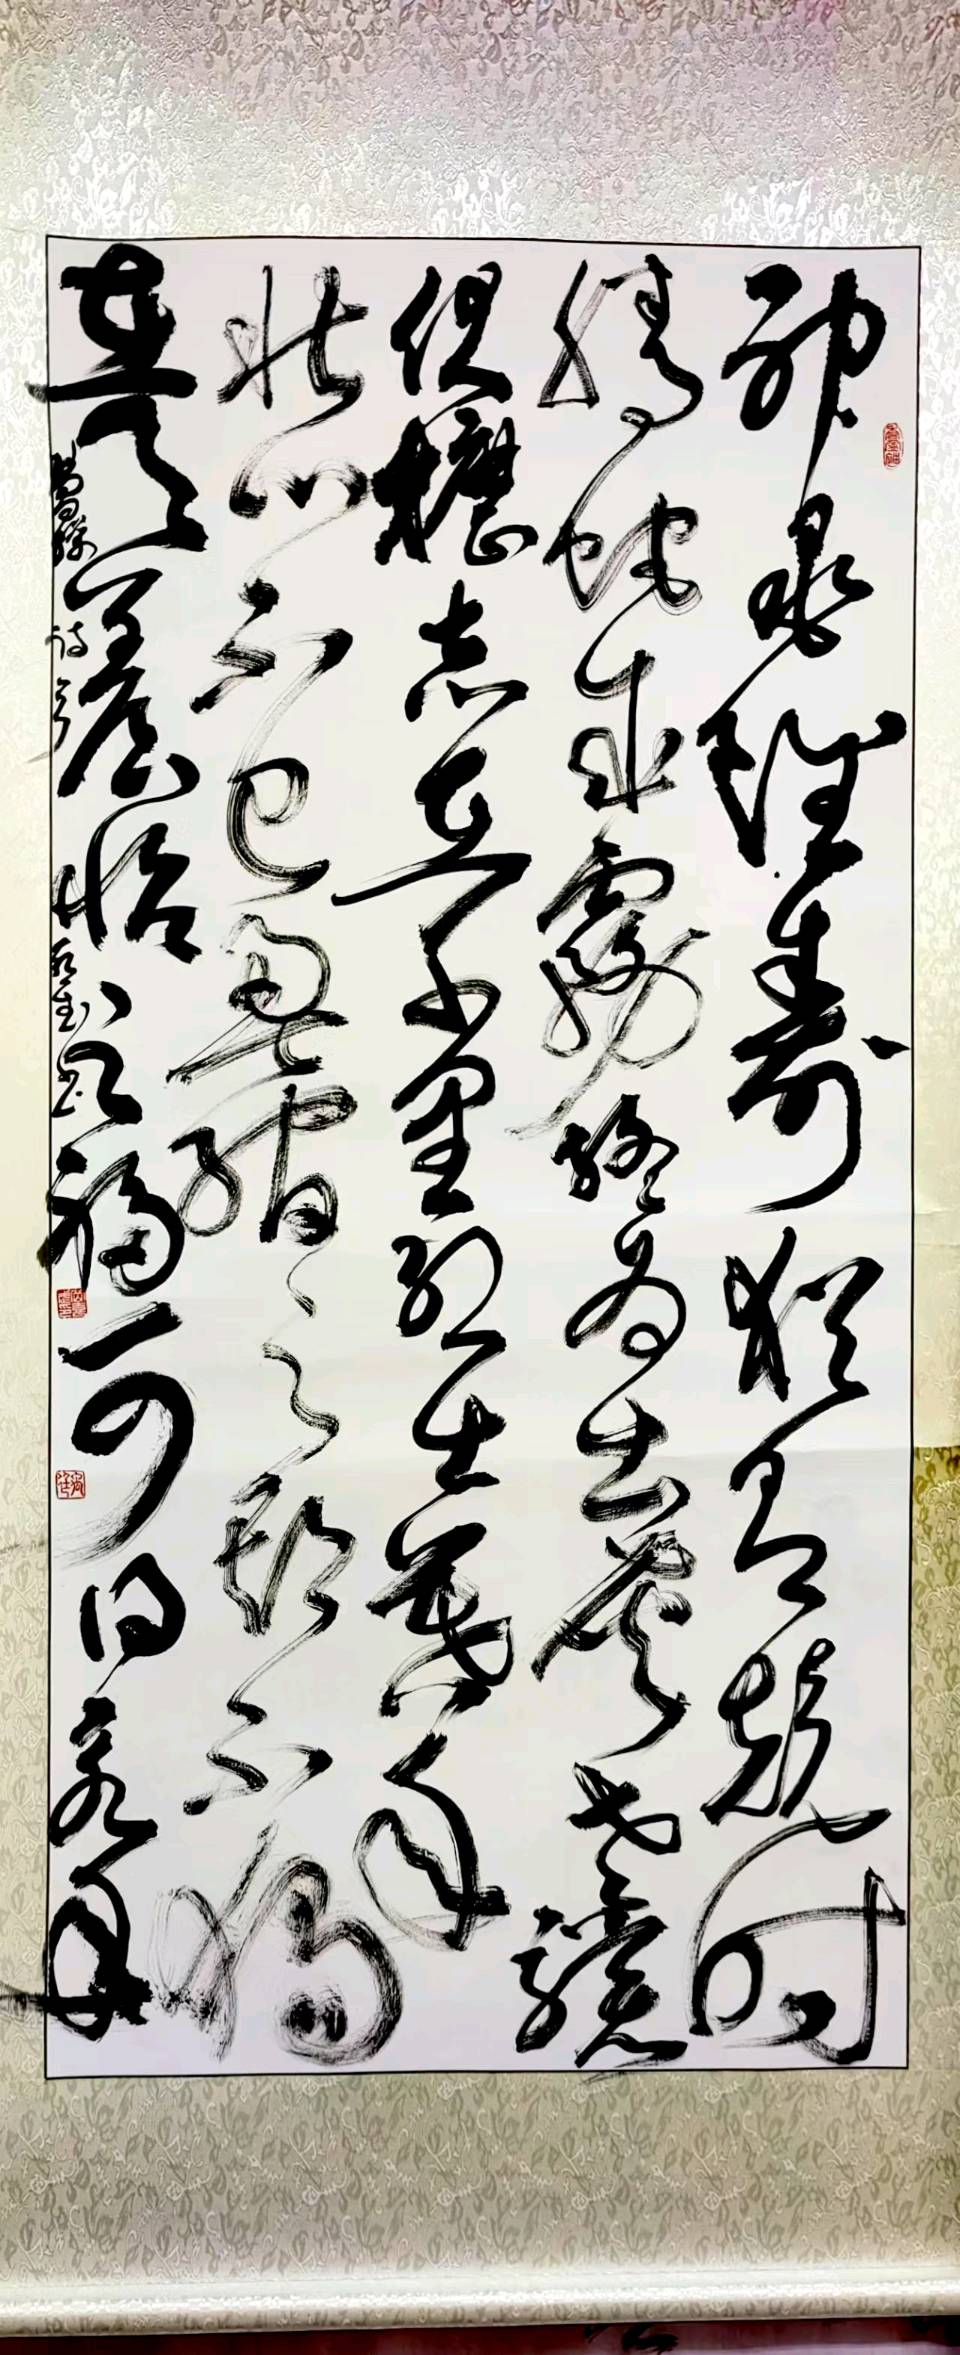 神龜雖壽猶有竟時
騰蛇乘霧終為土灰老驥
伏櫪志在千里烈士暮年
壯心不已盈縮之期不獨
在天養怡之福可得永年
曹操詩